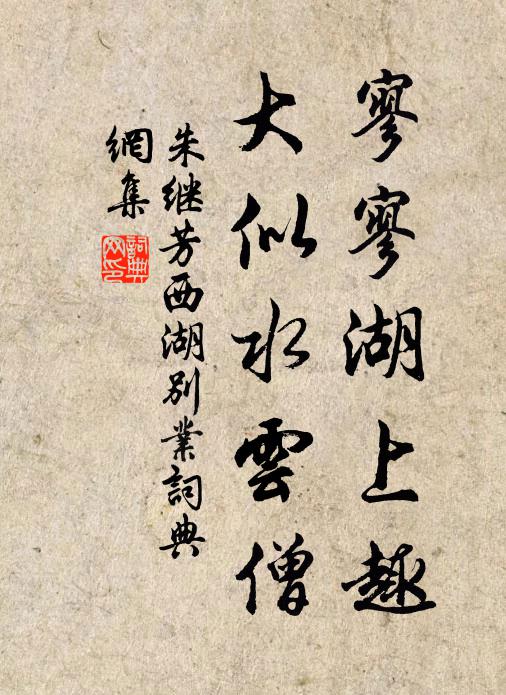 寥寥湖上趣
大似水雲僧
朱继芳西湖别業詞典
網集
詞典網印